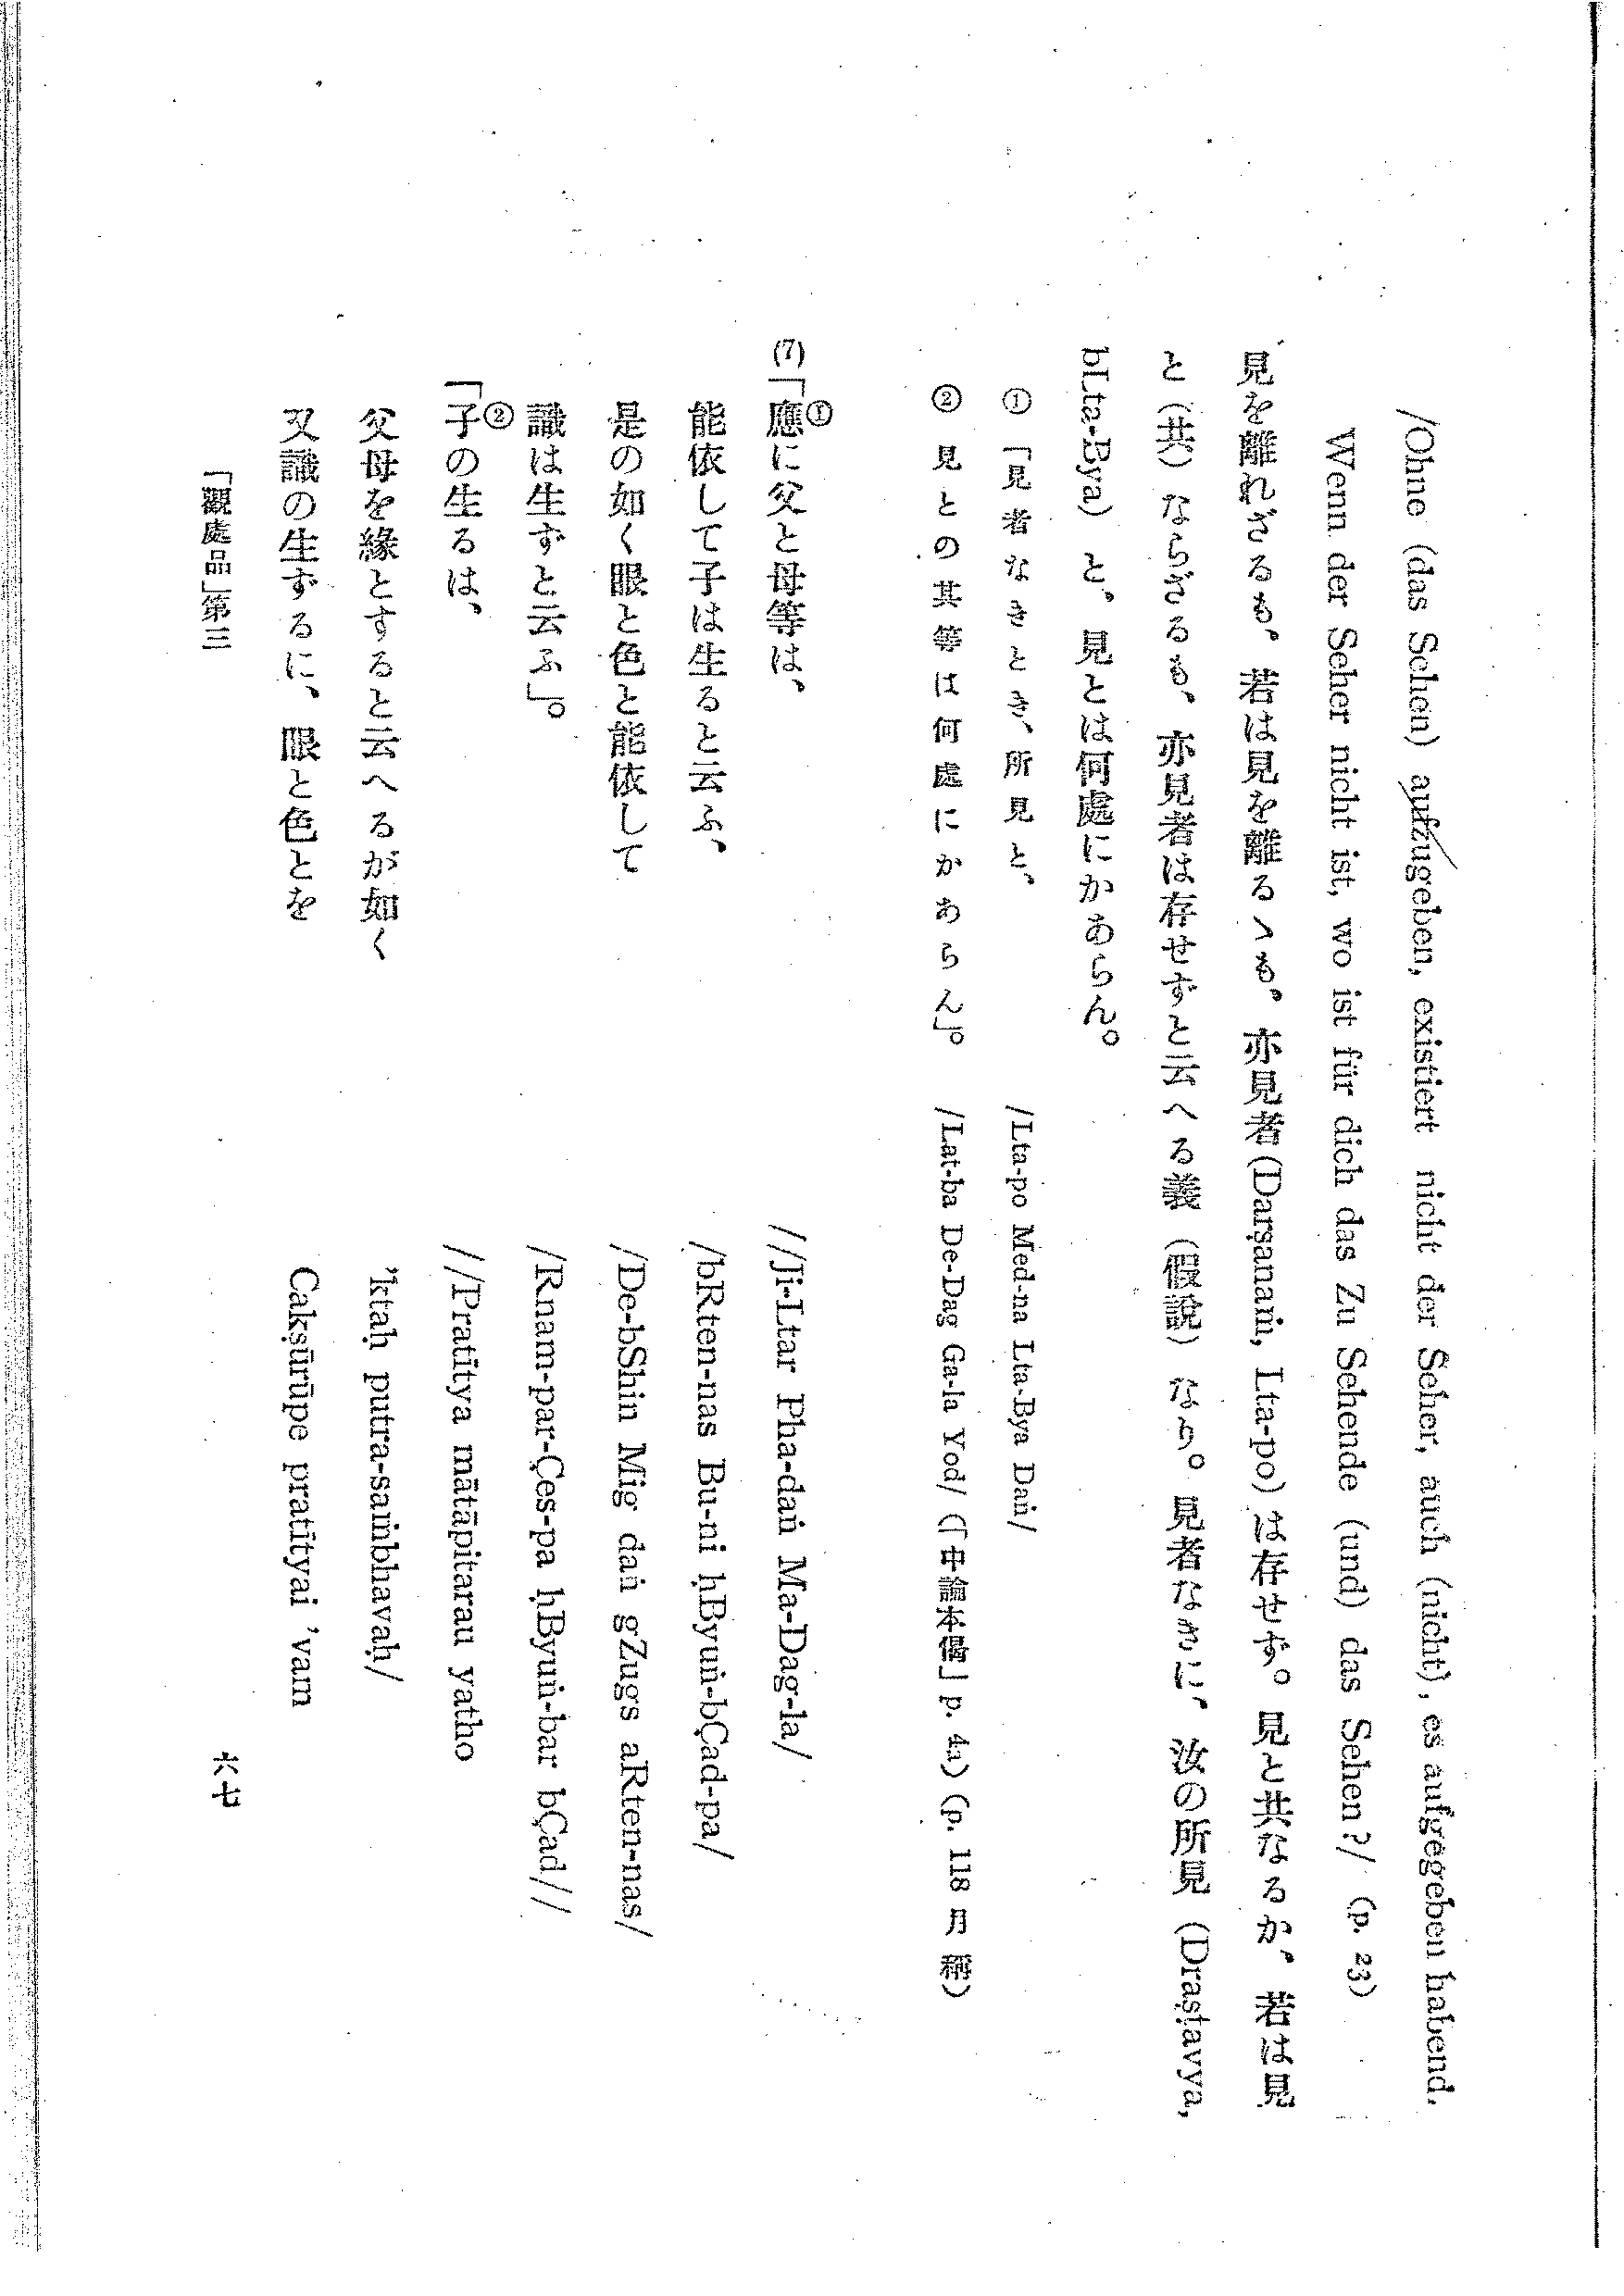 /Ohne (das Sehen) aufzugeben, existiert nicht der Seher, auch (nicht), es aufgegeben habend.
Wenn der Seher nicht ist, wo ist für dich das Zu Sehende (und) das Sehen?/ (p. 23)
見を離れざるも。若は見を離るゝも。亦見者(Darṣanaṁ, Lta-po) は存せず。見と共なるか、若は見
と(共)ならざるも、亦見者は存せずと云へる義(假説)なり。見者なきに、汝の所見 (Draṣṭavya,
bLta-Bya) と、見とは何處にかあらん。
① 「見者なきとき、所見と、 /Lta-po Med-na Lta-Bya Daṅ/
② 見との其等は何處にかあらん」。 /Lat-ba De-Dag Ga-la Yod/ (「中論本偈」p. 4a) (p. 118 月稱)
(7)「①應に父と母等は、 //Ji-Ltar Pha-daṅ Ma-Dag-la/
能依して子は生ると云ふ、 /bRten-nas Bu-ni ḥByuṅ-bÇad-pa/
是の如く眼と色と能依して /De-bShin Mig daṅ gZugs aRten-nas/
識は生ずと云ふ」。 /Rnam-par-Çes-pa ḥByuṅ-bar bÇad//
「②子の生るは、 //Pratītya mātāpitarau yatho
父母を緣とすると云へるが如く 'ktaḥ putra-saṁbhavaḥ/
又識の生ずるに、眼と色とを Cakṣūrūpe pratītyai 'vam
「觀處品」第三 六七